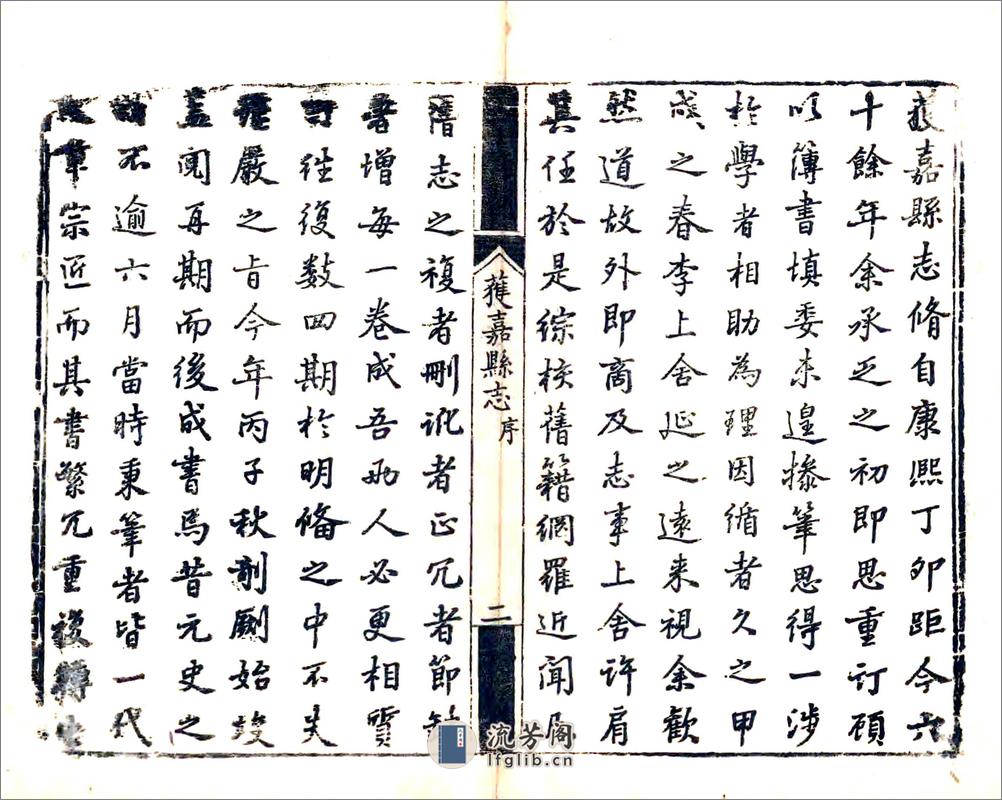 獲嘉縣志脩自康熙丁卯距今六
十餘年余承乏之初即思重訂顧
以簿書填委未遑摻筆思得一涉
於學者相助為理因循者久之甲
戌之春李上舍延之遠来視余歡
然道故外即商及志事上舍許肩
其任於是綜核舊籍網羅近聞
獲嘉縣志 序
二
舊志之複者刪訛者正冗者節缺
者增每一卷成吾兩人必更相質
訂往復数四期於明俻之中不失
嚴之旨今年丙子秋剞劂始竣
盖閲再期而後成書焉昔元史之
不逾六月當時秉筆者皆一代
宗匠而其書繁冗重複
流芳阁
lfglib.cn